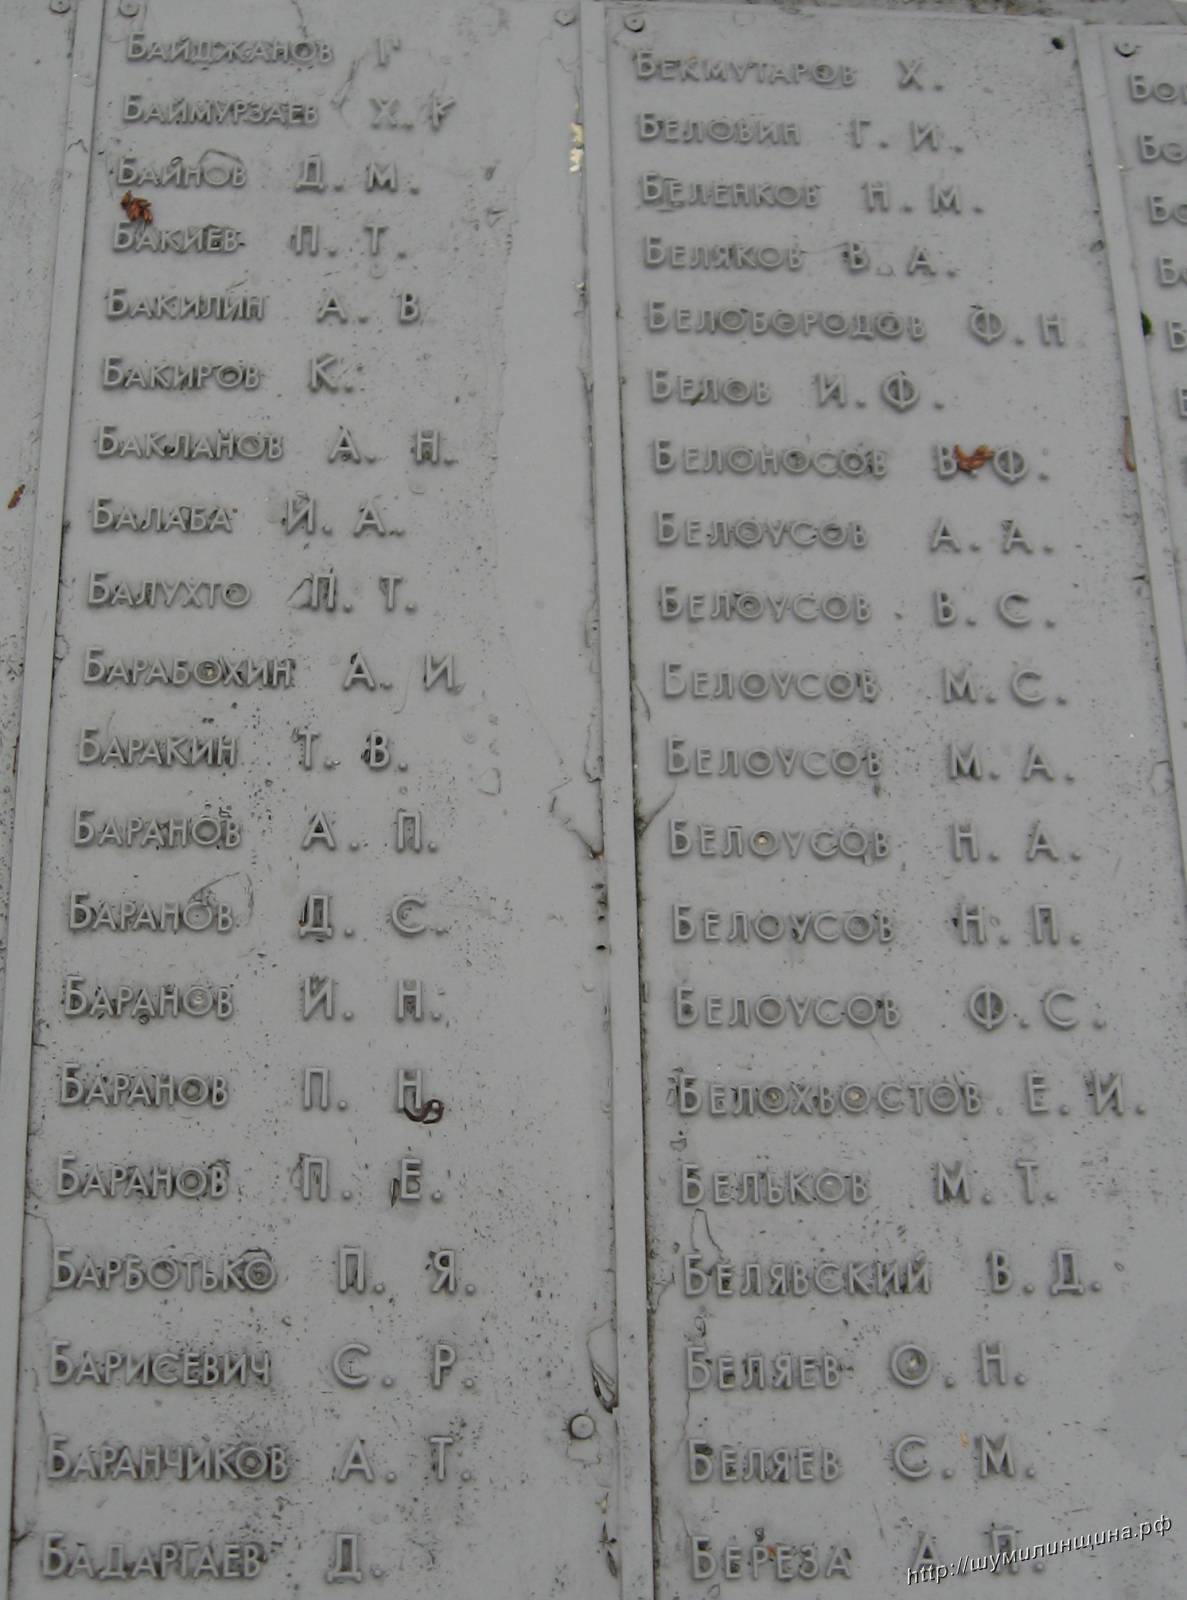 БАЙДЖАНОВ Г
БАЙМУРЗАЕВ Х. Г
БАЙНОВ Д. М.
БАКИЕВ П. Т.
БАКИЛИН А. В
БАКИРОВ К.
БАКЛАНОВ А. Н.
БАЛАБА И. А.
БАЛУХТО П. Т.
БАРАБОХИН А. И
БАРАКИН Т. В.
БАРАНОВ А. П.
БАРАНОВ Д. С.
БАРАНОВ И. Н.
БАРАНОВ П. Н.
БАРАНОВ П. Е.
БАРБОТЬКО П. Я.
БАРИСЕВИЧ С. Р.
БАРАНЧИКОВ А. Т.
БАДАРГАЕВ Д.
БЕКМУТАРОВ Х.
БЕЛОВИН Г. И.
БЕЛЕНКОВ Н. М.
БЕЛЯКОВ В. А.
БЕЛОБОРОДОВ Ф. Н
БЕЛОВ И. Ф.
БЕЛОНОСОВ В. Ф.
БЕЛОУСОВ А. А.
БЕЛОУСОВ В. С.
БЕЛОУСОВ М. С.
БЕЛОУСОВ М. А.
БЕЛОУСОВ Н. А.
БЕЛОУСОВ Н. П.
БЕЛОУСОВ Ф. С.
БЕЛОХВОСТОВ Е. И.
БЕЛЬКОВ М. Т.
БЕЛЯВСКИЙ В. Д.
БЕЛЯЕВ О. Н.
БЕЛЯЕВ С. М.
БЕРЕЗА А. П.
http://шумилинщина.рф